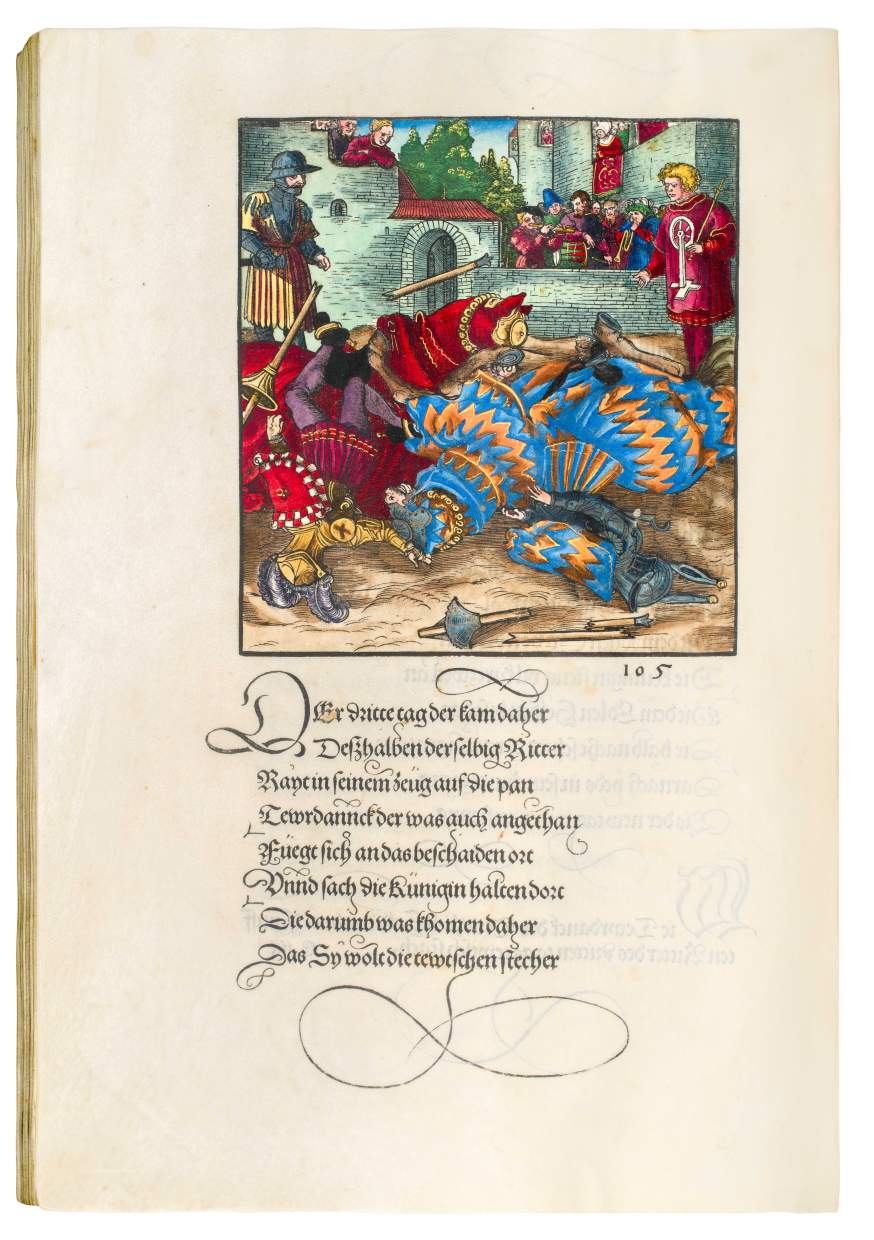 105
DEr dritte tag der kam daher
Deßhalben der selbig Ritter
Rayt in seinem zeüg auf die pan
Tewrdannck der was auch angethan
Füegt sich an das beschaiden ort
Vnnd sach die Künigin halten dort
Die darumb was khomen daher
Das Sÿ wolt die tewtschen stecher